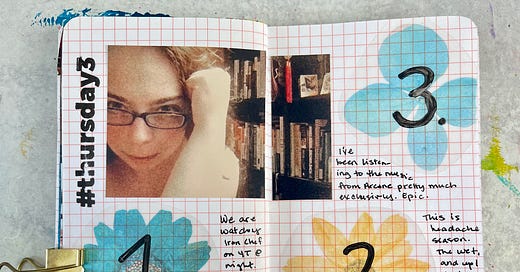 #thursday3
3.
I've
been listen-
ing to the music
from Arcane pretty much
exclusively. Epic.
1
We are
watching
Iron Chef
on YT @
night.
2
This is
headache
season.
The wet,
and up/